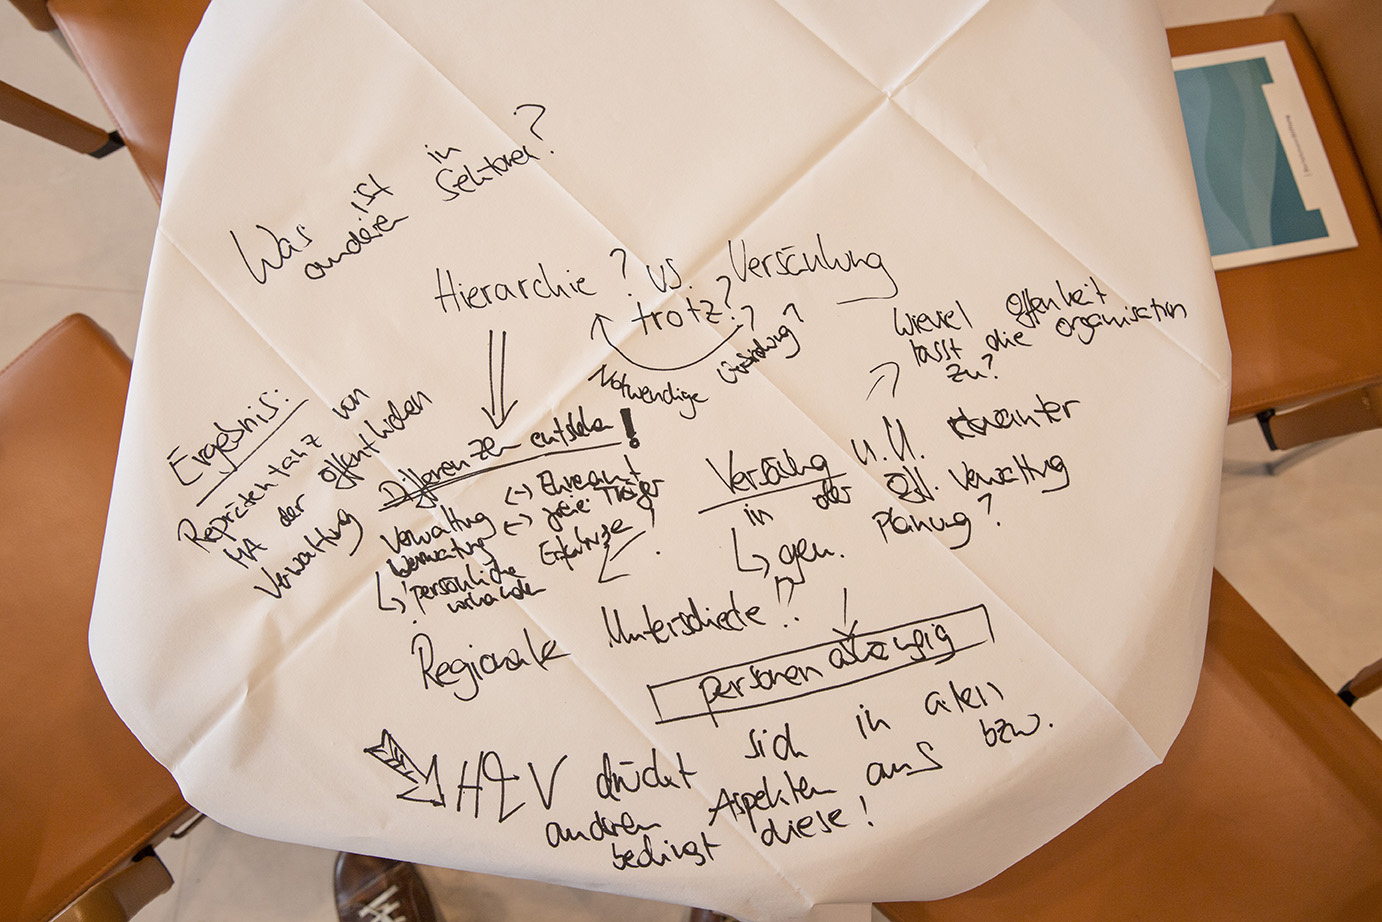 Was ist in
anderen Sektoren?
Hierarchie ? vs. ? Versäulung
trotz?
Notwendige
Wieviel Offenheit
lässt die Organisation
zu?
Ergebnis:
Repräsentanz von
MA der öffentlichen
Verwaltung
Differenzen entstehen!
Verwaltung <-> Ehrenamt
Verwaltung <-> freie Träger
↳ persönliche
vorhanden
Versäulung u.U.
in der öff. Verwaltung
↳ gem. Planung?
Regionale Unterschiede!!
personenabhängig
H&V drückt sich in allen
anderen Aspekten aus bzw.
bedingt diese!